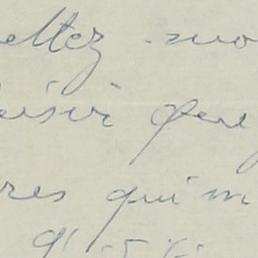 ettez moi
aisir que
res qui m